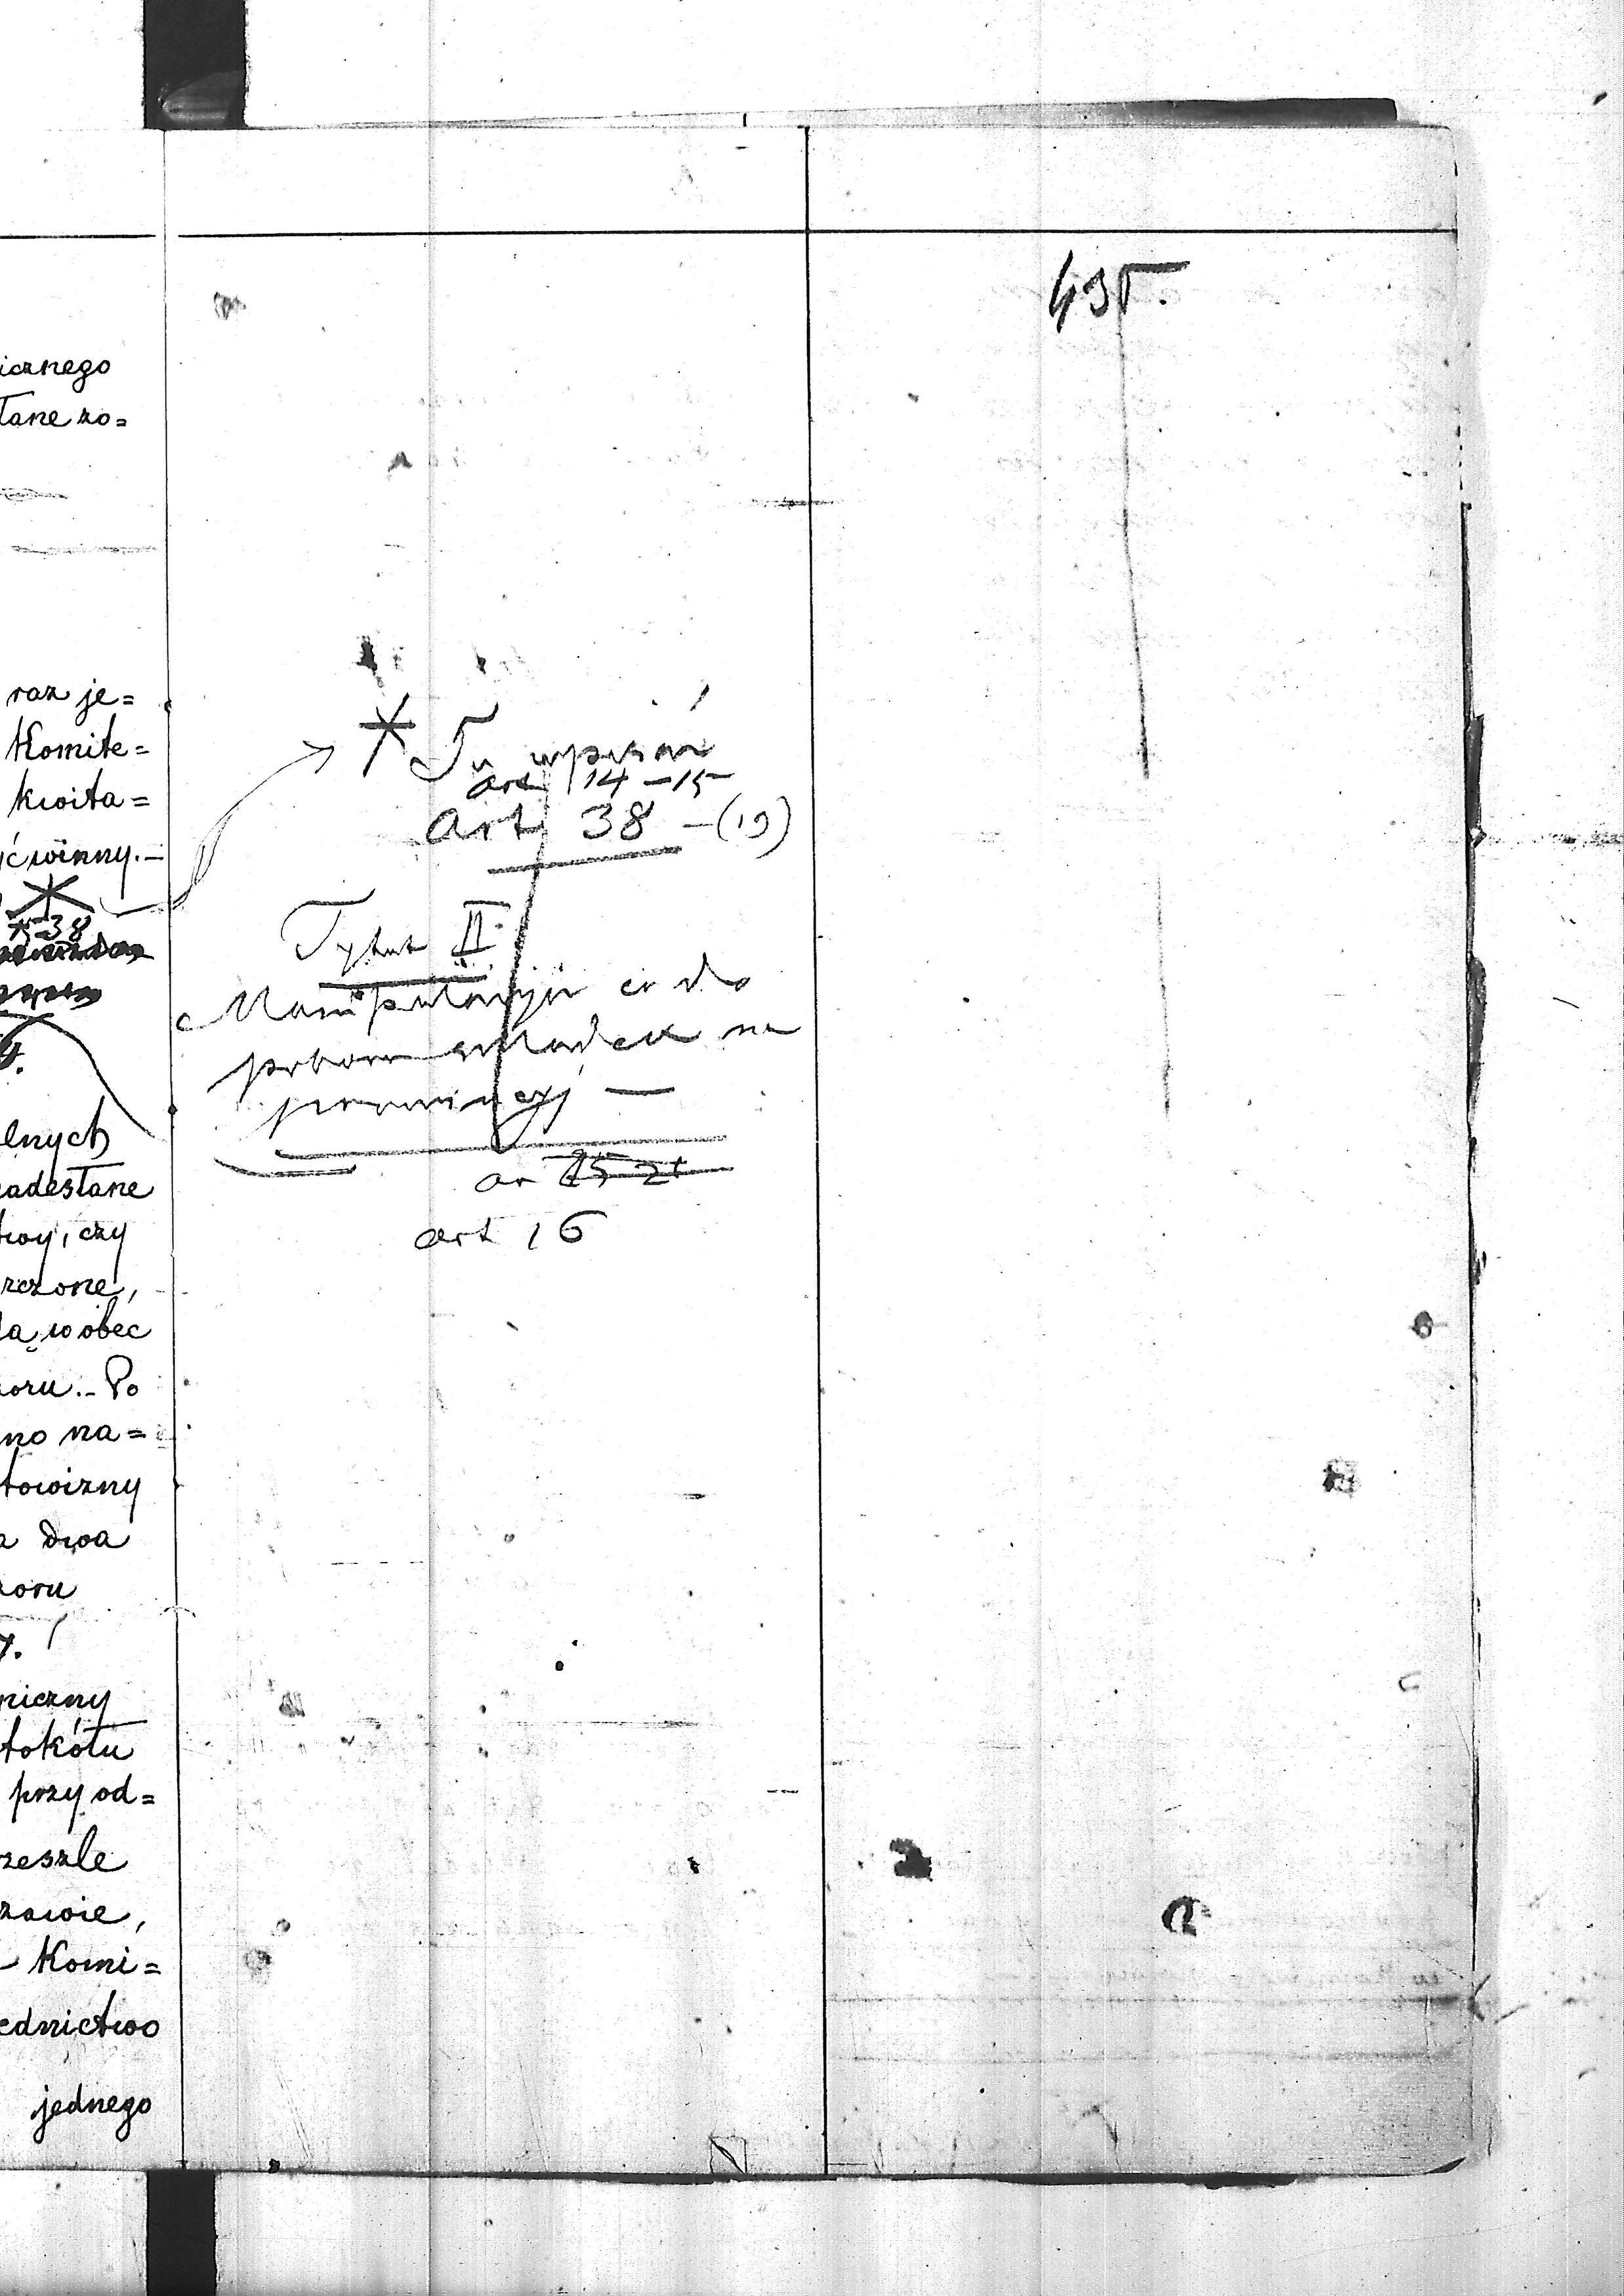 435.
icznego
łane zo=
raz je=
Komite=
kwita=
yć winny.—
38
lnych
nadesłane
twy, czy
rczone,
da, wobec
zoru.- Po
no na=
towizny
a dwa
zoru
7.
niczny
tokółu
przy od=
ześzle
zawie,
Komi=
ednictwo
jednego
* Tu wpisać
art 14 - 15
art. 38 - (19)
Tytuł II
Manipulacyja co do
poboru składek na
prowincyj —
ar 15 21
art 16